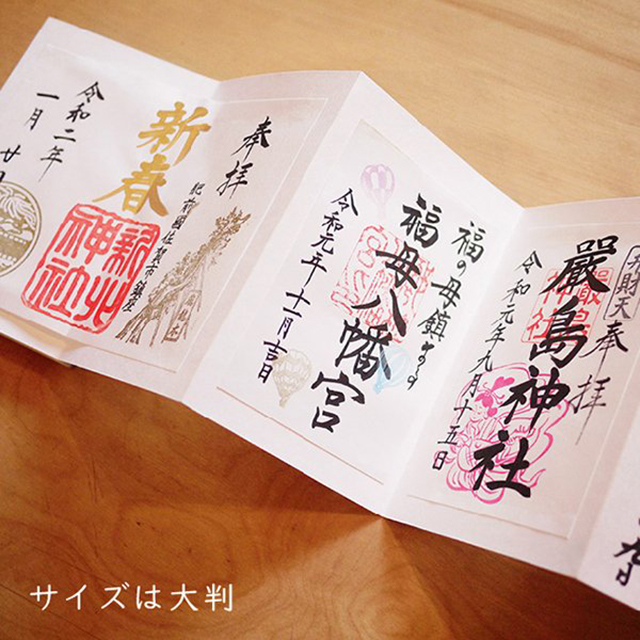 奉拝
肥前國佐賀市鎮座
新春
新北神社
令和二年
一月廿
福の母鎮
福母八幡宮
令和元年十一月吉日
奉拝
厳島神社
令和元年九月十五日
サイズは大判